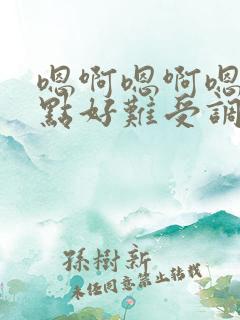 嗯啊嗯啊嗯
點好難受調
孫樹新
未经同意禁止转载